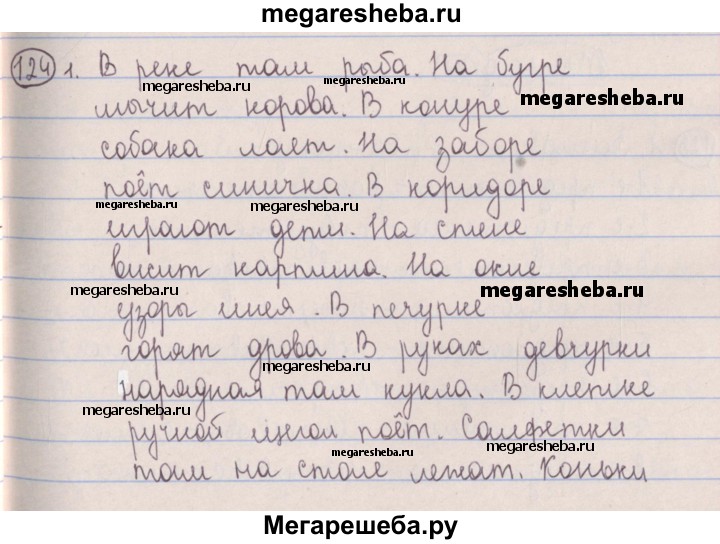 megaresheba.ru
124 1. В реке там рыба. На бугре
megaresheba.ru megaresheba.ru
мычит корова. В конуре megaresheba.ru
собака лает. На заборе
поёт синичка. В коридоре
megaresheba.ru megaresheba.ru
играют дети. На стене
висит картина. На окне
megaresheba.ru megaresheba.ru
узоры инея. В печурке
горят дрова. В руках девчурки
megaresheba.ru
нарядная там кукла. В клетке
megaresheba.ru
ручной щегол поёт. Салфетки
megaresheba.ru megaresheba.ru
там на столе лежат. Коньки
Мегарешеба.ру